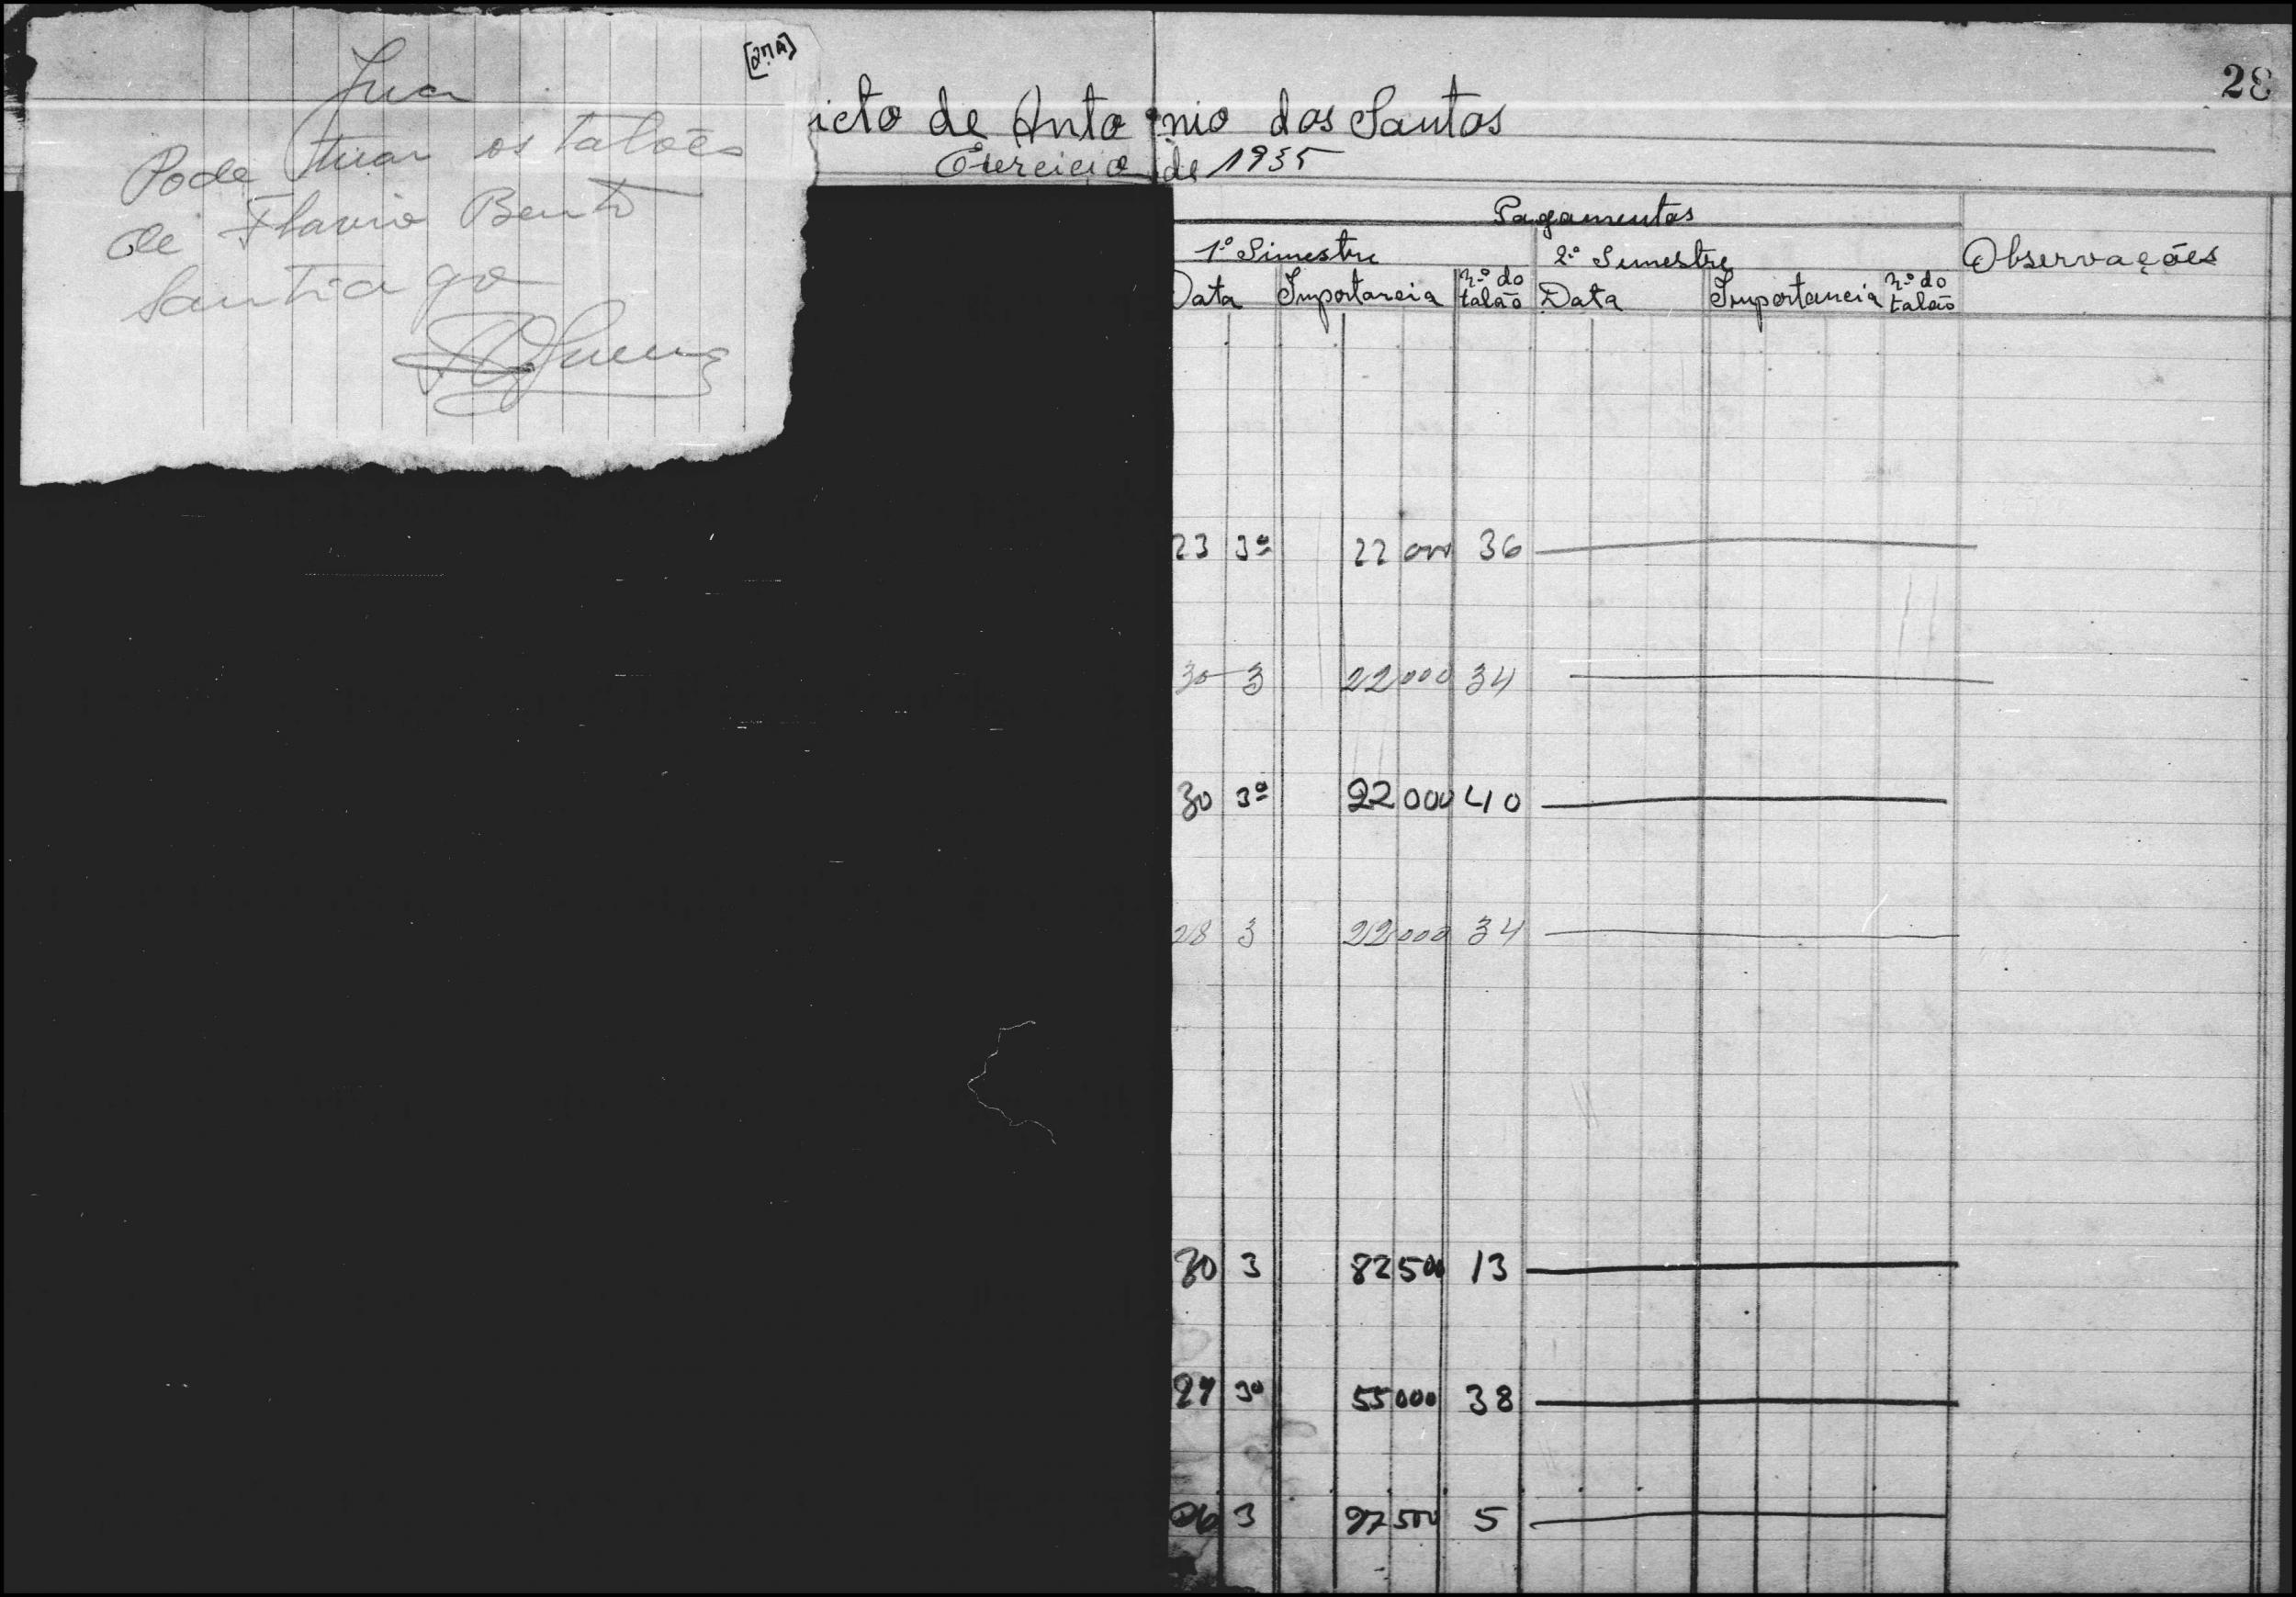 [27A]
Juca
Pode tirar os talões
de Flavio Bento
Santiago
28
icto de Antonio dos Santos
Exercicio de 1935
Pagamentos
1º Simestre 2º Semestre Observações
Data Importancia n.º do talão Data Importancia n.º do talão
23 3º 22 000 36
30 3 22000 34
30 3º 22 000 40
28 3 22000 34
30 3 82 500 13
27 3º 55 000 38
26 3 27 500 5